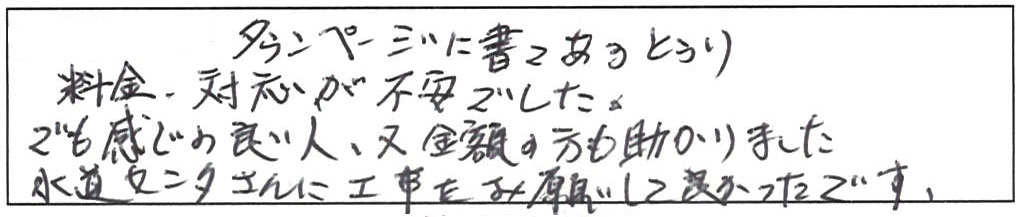 タウンページに書てあるとうり
料金、対応が不安でした。
でも感じの良い人、又金額の方も助かりました
水道センタさんに工事をお願いして良かったです、